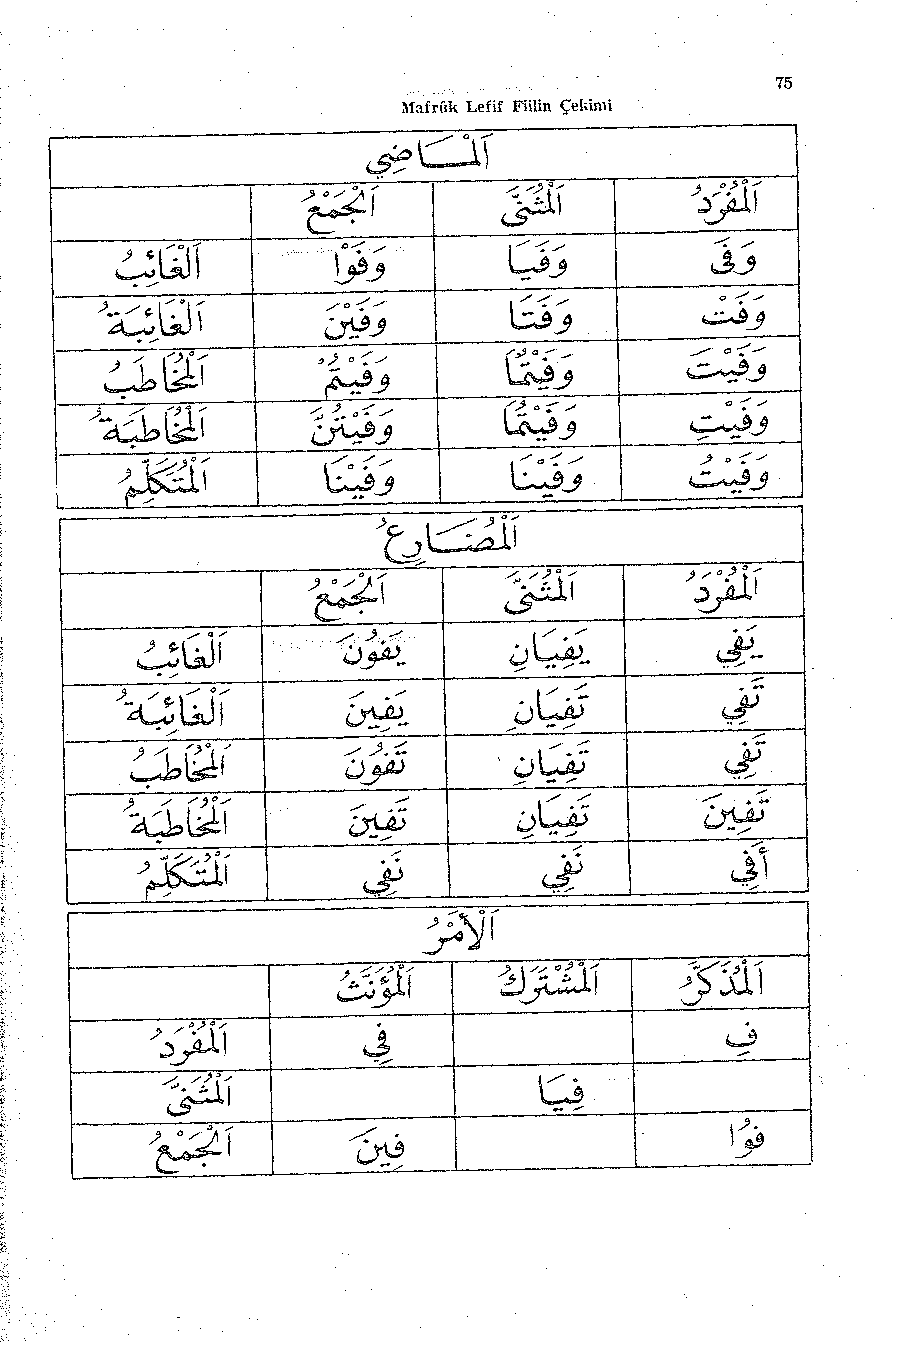 75
Mafrûk Lefif Fiilin Çekimi
اَلْمَــاضِي
اَلْمُفْرَدُ اَلْمُثَنَّى اَلْجَمْعُ
وَفَى وَفَيَا وَفَوْا اَلْغَائِبُ
وَفَتْ وَفَتَا وَفَيْنَ اَلْغَائِبَةُ
وَفَيْتَ وَفَيْتُمَا وَفَيْتُمْ اَلْمُخَاطَبُ
وَفَيْتِ وَفَيْتُمَا وَفَيْتُنَّ اَلْمُخَاطَبَةُ
وَفَيْتُ وَفَيْنَا وَفَيْنَا اَلْمُتَكَلِّمُ
اَلْمُضَــارِعُ
اَلْمُفْرَدُ اَلْمُثَنَّى اَلْجَمْعُ
يَفِي يَفِيَانِ يَفُونَ اَلْغَائِبُ
تَفِي تَفِيَانِ يَفِينَ اَلْغَائِبَةُ
تَفِي تَفِيَانِ تَفُونَ اَلْمُخَاطَبُ
تَفِينَ تَفِيَانِ تَفِينَ اَلْمُخَاطَبَةُ
أَفِي نَفِي نَفِي اَلْمُتَكَلِّمُ
اَلْأَمْرُ
اَلْمُذَكَّرُ اَلْمُشْتَرَكُ اَلْمُؤَنَّثُ
فِ فِي اَلْمُفْرَدُ
فِيَا اَلْمُثَنَّى
فُوا فِينَ اَلْجَمْعُ